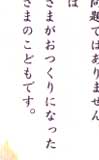 問題ではありません
は
さまがおつくりになった
さまのこどもです。